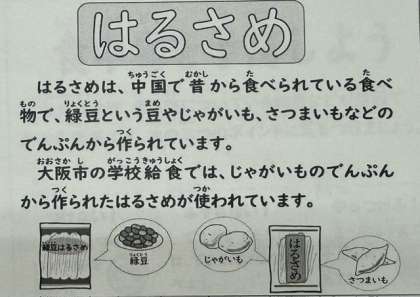 はるさめ
はるさめは、中国で昔から食べられている食べ
物で、緑豆という豆やじゃがいも、さつまいもなどの
でんぷんから作られています。
大阪市の学校給食では、じゃがいものでんぷん
から作られたはるさめが使われています。
緑豆はるさめ
緑豆
じゃがいも
はるさめ
さつまいも